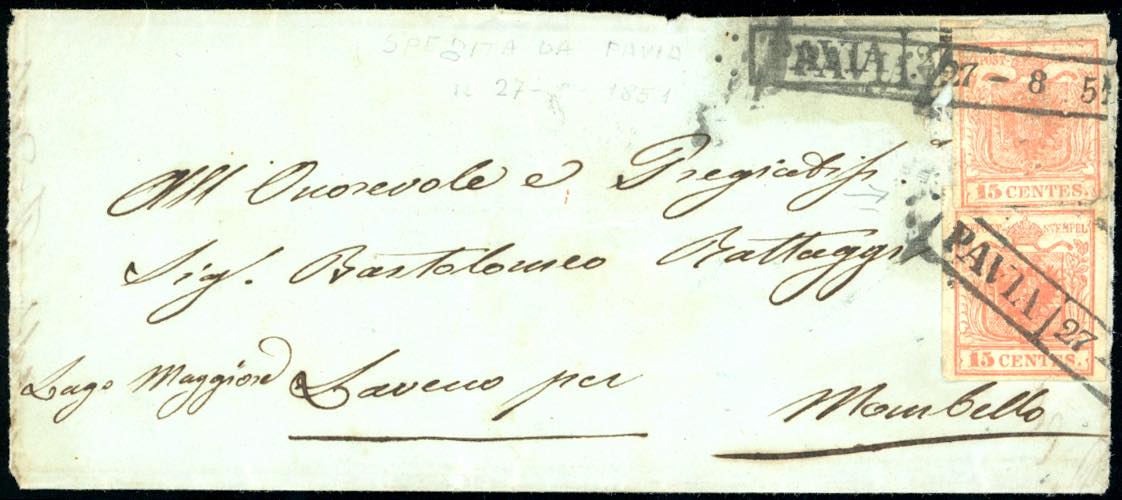 SPEDITA DA PAVIA
il 27-8-1851
PAVIA 27
PAVIA
27 - 8 51
POST-
15 CENTES.
POST-STEMPEL
PAVIA 27
15 CENTES.
All Onorevole e Pregiatiss.
Sig. Bartolomeo Battaggi
Lago Maggiore Laveno per Mombello